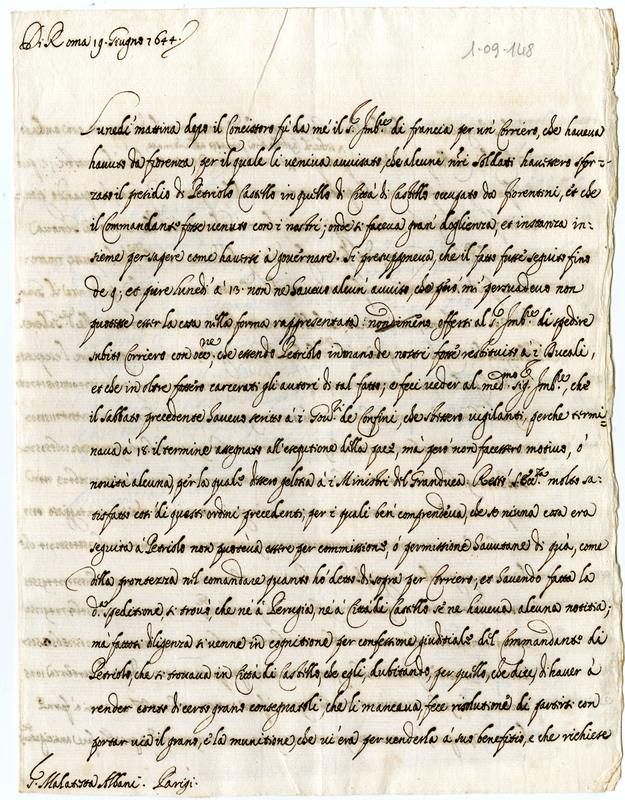 Di Roma 19. Giugno 1644.
1-09-148
Lunedi mattina dopo il Concistoro fù da me il S.r Imb.re di francia per un' Corriero, che haveva
havuto da fiorenza, per il quale li veniva avvisato, che alcuni n'ri soldati havessero sfor-
zato il presidio di Petriolo Castello in quello di Città di Castello occupato da fiorentini, et che
il Commandante fosse venuto con i nostri; onde si faceva gran' doglienza, et instanza in-
sieme per sapere come haversi à governare. Si presupponeva che il fatto fusse seguito fino
de 9; et pure lunedì à 13. non ne havevo alcun' avviso, che però mi persuadevo non
potesse esser la cosa nella forma rappresentata: nondimeno offersi al S.r Imb.re di spedire
subito Corriero con ord.ne, che essendo Petriolo in mano de nostri fosse restituito à i Ducali,
et che in oltre fossero carcerati gli autori di tal fatto; e feci veder al med.mo Sig.r Imb.re che
il sabbato precedente havevo scritto à i Gov.ri de Confini, che stessero vigilanti, perche termi-
nava à 18. il termine assegnato all'esegutione della pace, mà però non facessero motivo, ò
novità alcuna, per la quale dessero gelosia à i Ministri del Granduca. Restò S. Ecc.za molto sa-
tisfatto così di questi ordini precedenti, per i quali ben' comprendeva, che se nissuna cosa era
seguita à Petriolo non poteva essere per commissione, ò permissione havutane di quà, come
della prontezza nel comandare quanto hò detto di sopra per Corriero; et havendo fatta la
d.a speditione, si trovò che nè à Perugia, nè à Città di Castello se ne haveva alcuna notitia;
mà fattasi diligenza si venne in cognitione per confessione giuditiale del Commandante di
Petriolo, che si trovava in Città di Castello, che egli, dubitando, per quello, che dice, di haver à
render conto di certo grano consegnatoli, che li mancava, fece risolutione di partirsi con
portar via il grano, e la munitione, che vi era per venderla à suo benefitio, e che richiese
S. Malatesta Albani. Parigi.